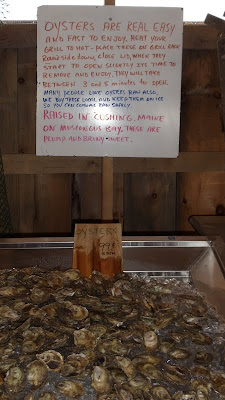 OYSTERS ARE REAL EASY
AND FAST TO ENJOY. HEAT YOUR
GRILL TO HOT - PLACE THESE ON GRILL RACK
Round side down, close lid, when they
START TO OPEN SLIGHTLY ITS TIME TO
REMOVE AND ENJOY, THEY WILL TAKE
BETWEEN 3 and 5 minutes to open.
MANY PEOPLE LIKE OYSTERS RAW ALSO,
WE BUY THESE LOCAL AND KEEP THEM ON ICE
SO YOU CAN CONSUME RAW SAFELY
RAISED IN CUSHING, MAINE
ON MUSCONGUS BAY, THESE ARE
PLUMP AND BRINY SWEET.
OYSTERS
OYSTERS
99¢